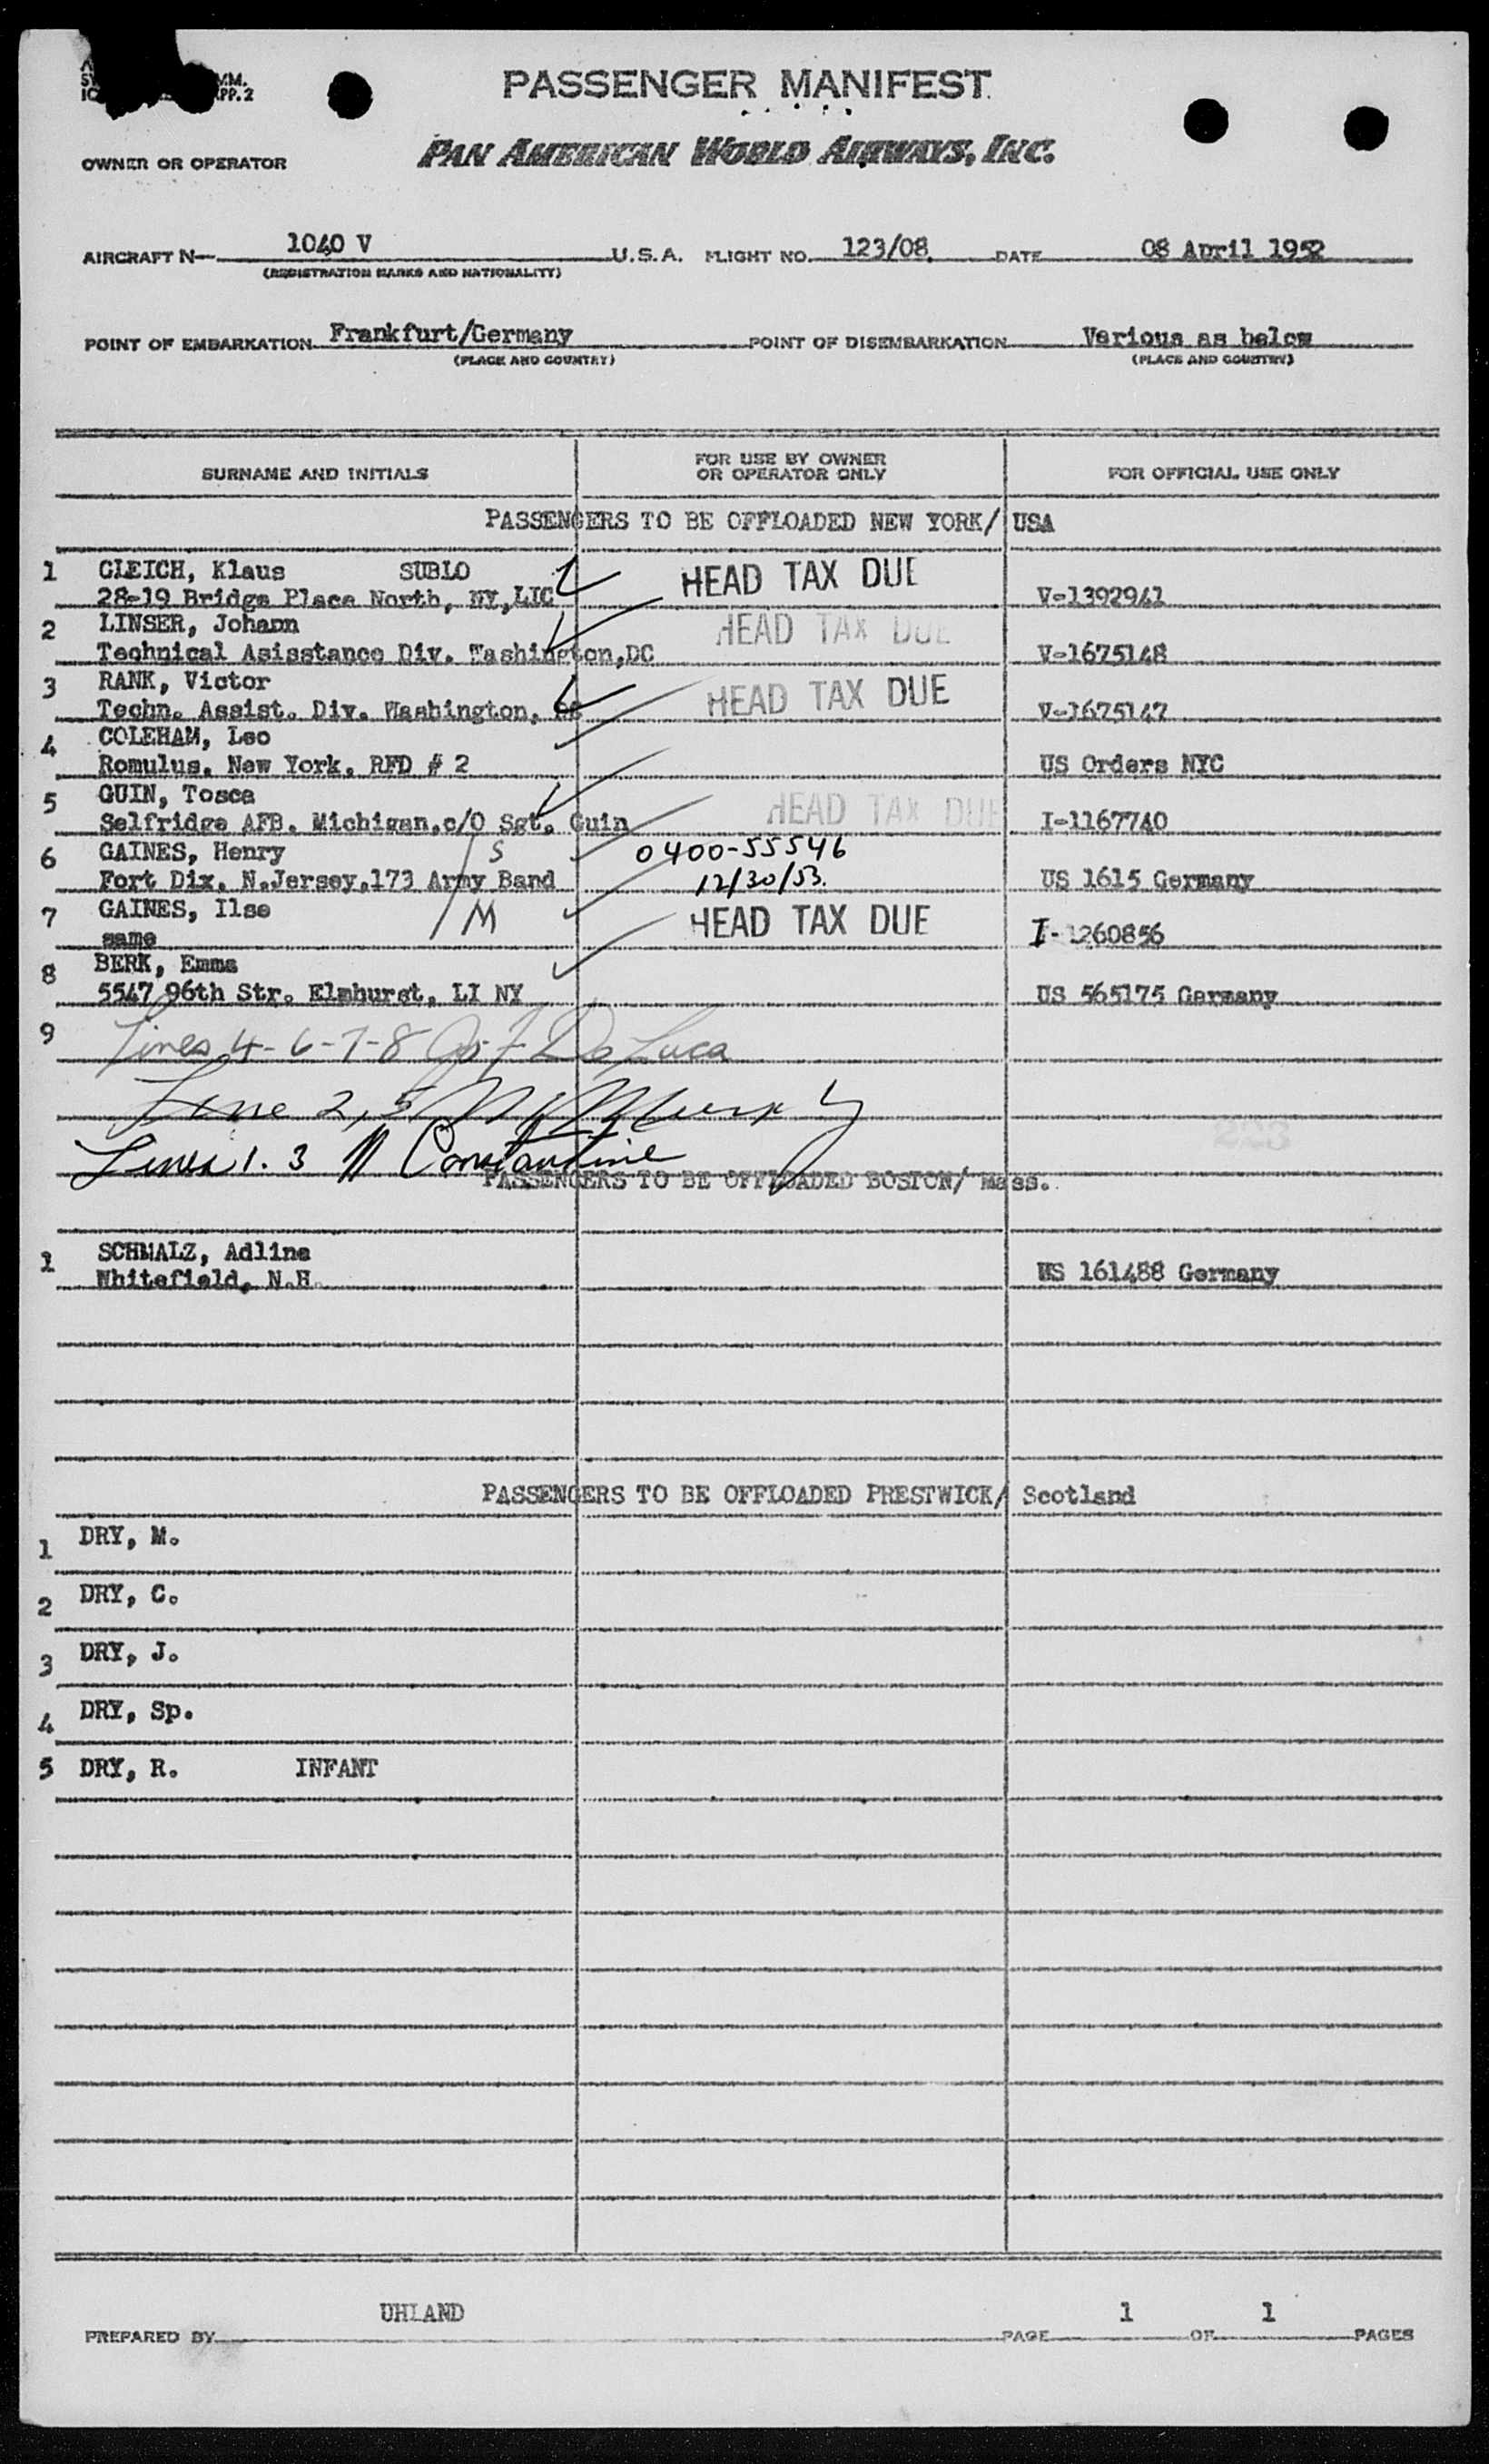 PASSENGER MANIFEST
OWNER OR OPERATOR PAN AMERICAN WORLD AIRWAYS, INC.
AIRCRAFT N— 1040 V U.S.A. FLIGHT NO. 123/08 DATE 08 April 1952
(REGISTRATION MARKS AND NATIONALITY)
POINT OF EMBARKATION Frankfurt/Germany POINT OF DISEMBARKATION Various as below
(PLACE AND COUNTRY) (PLACE AND COUNTRY)
SURNAME AND INITIALS FOR USE BY OWNER OR OPERATOR ONLY FOR OFFICIAL USE ONLY
PASSENGERS TO BE OFFLOADED NEW YORK/ USA
1 GLEICH, Klaus SUBLO HEAD TAX DUE
28-19 Bridge Place North, NY,LIC V-1392941
2 LINSER, Johann HEAD TAX DUE
Technical Asisstance Div. Washington,DC V-1675148
3 RANK, Victor HEAD TAX DUE
Techn. Assist. Div. Washington, V-1675147
4 COLEHAM, Leo
Romulus. New York. RFD # 2 US Orders NYC
5 GUIN, Tosca HEAD TAX DUE
Selfridge AFB. Michigan.c/O Sgt. Guin I-1167740
6 GAINES, Henry S 0400-55546
Fort Dix. N.Jersey.173 Army Band 12/30/53. US 1615 Germany
7 GAINES, Ilse M HEAD TAX DUE
same I-1260856
8 BERK, Emma
5547 96th Str. Elmhurst, LI NY US 565175 Germany
9 Lines 4-6-7-8 De Luca
Line 2, 5
Lines 1. 3 Constantine
223
PASSENGERS TO BE OFFLOADED BOSTON/ Mass.
1 SCHMALZ, Adline
Whitefield, N.H. US 161488 Germany
PASSENGERS TO BE OFFLOADED PRESTWICK/ Scotland
1 DRY, M.
2 DRY, C.
3 DRY, J.
4 DRY, Sp.
5 DRY, R. INFANT
UHLAND 1 1
PREPARED BY PAGE OF PAGES